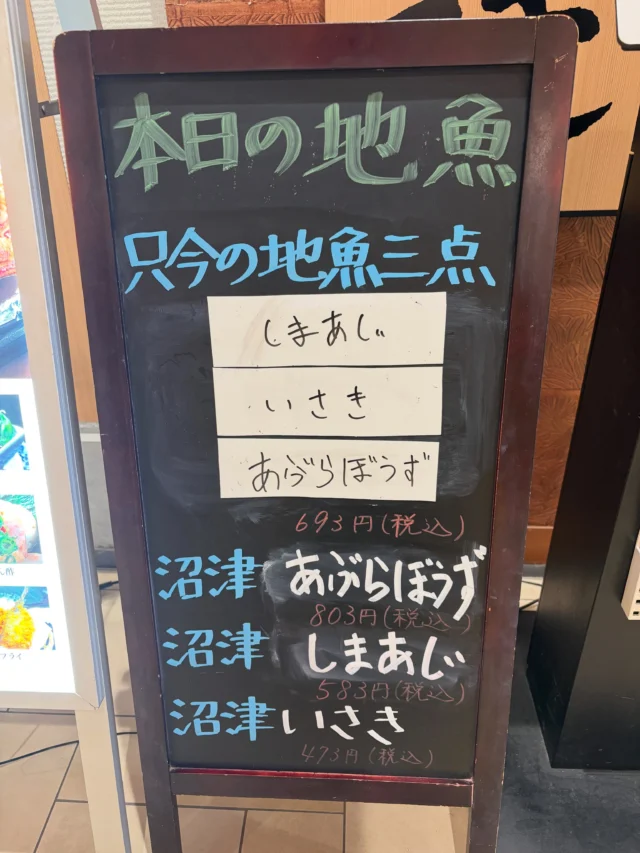 本日の地魚
只今の地魚三点
しまあじ
いさき
あぶらぼうず
693円(税込)
沼津 あぶらぼうず
803円(税込)
沼津 しまあじ
583円(税込)
沼津 いさき
473円(税込)